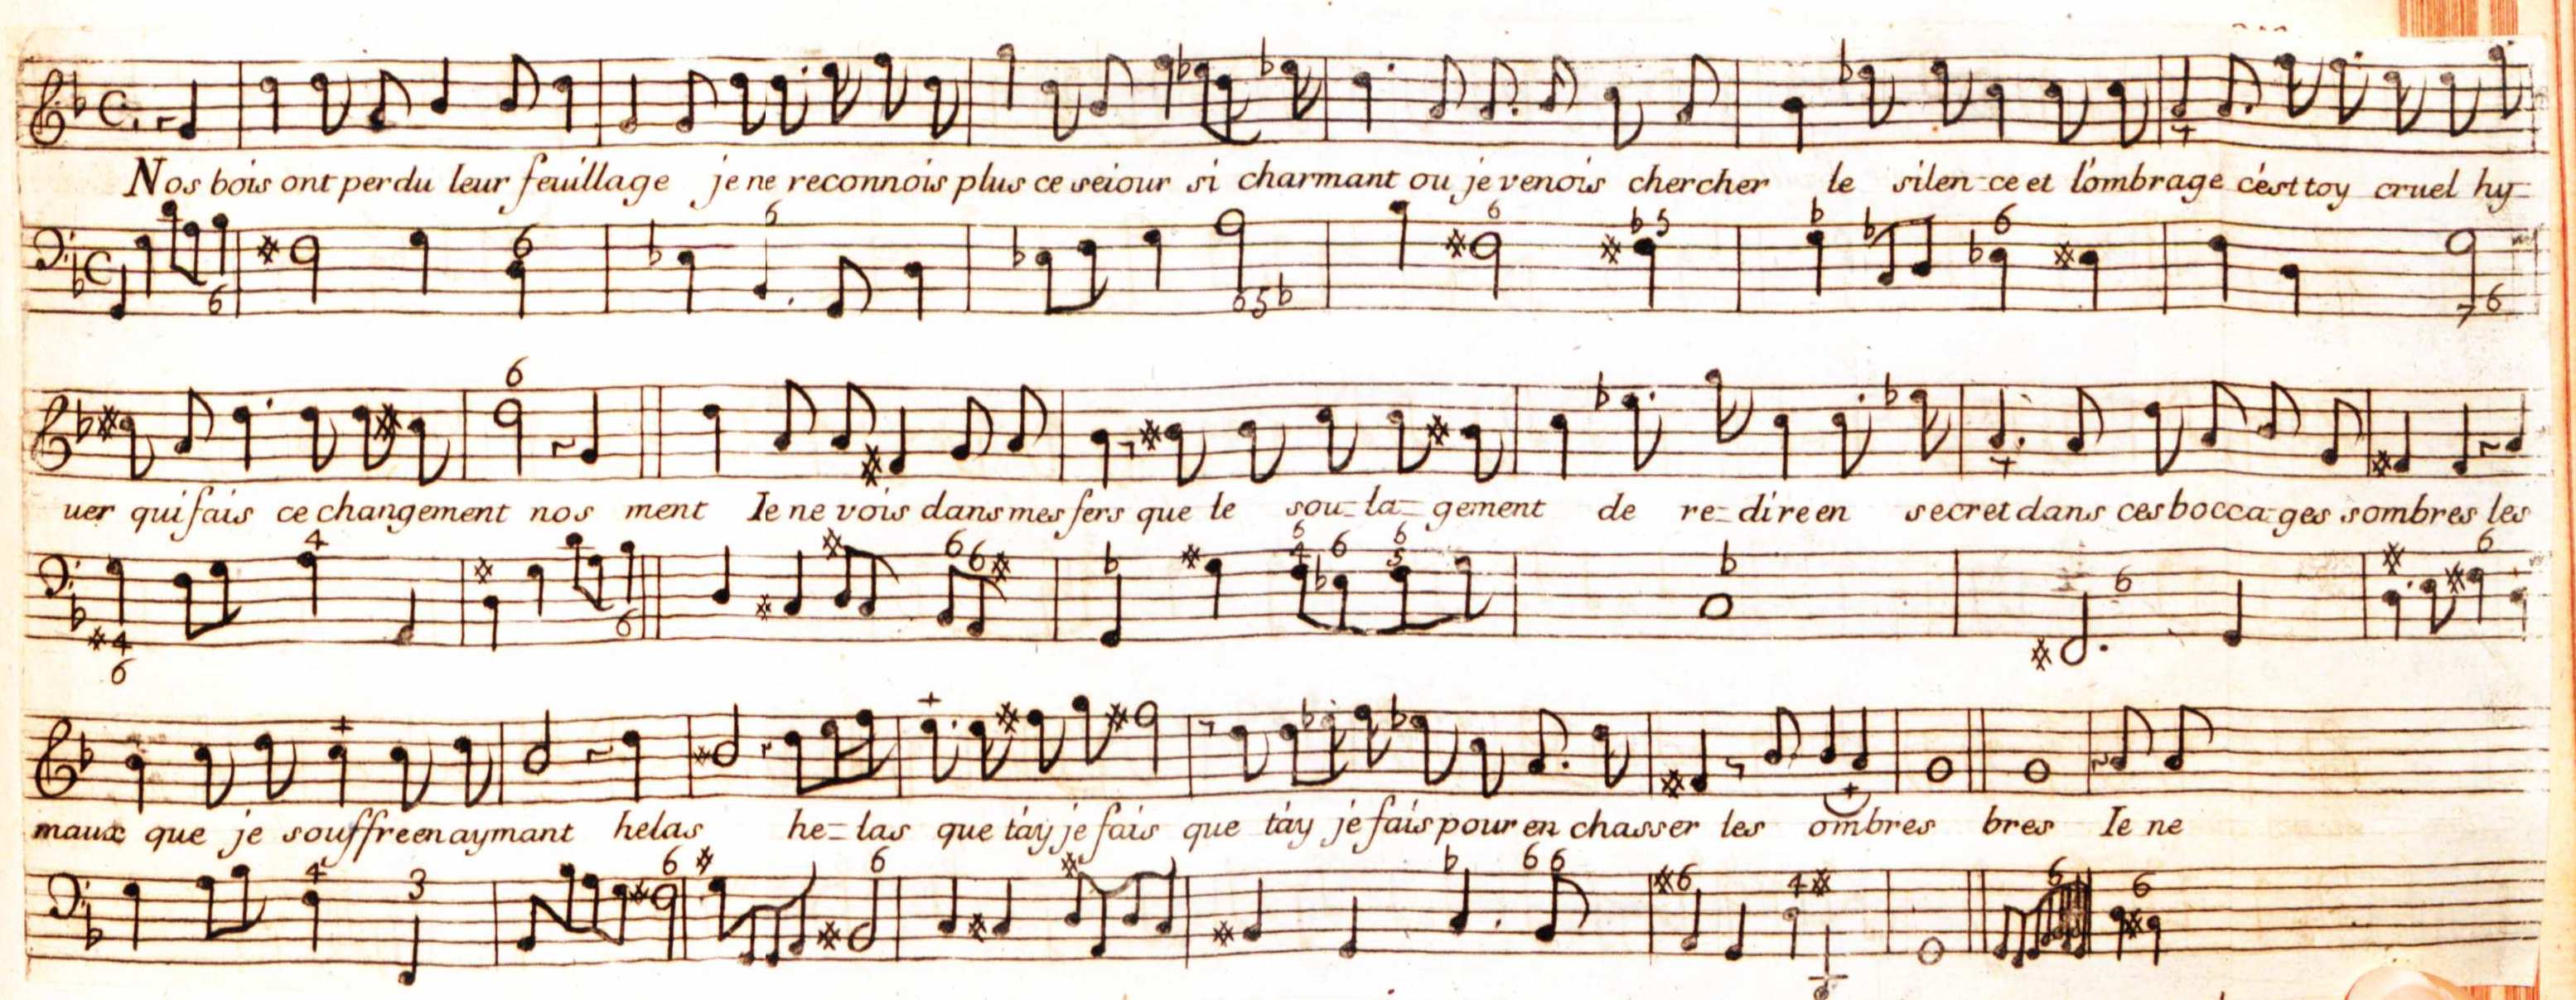 Nos bois ont perdu leur feuillage je ne reconnois plus ce seiour si charmant ou je venois chercher le silen-ce et l'ombrage c'est toy cruel hy-
uer qui fais ce changement nos ment Ie ne vois dans mes fers que le sou-la-gement de re-dire en secret dans ces bocca-ges sombres les
maux que je souffre en aymant helas he-las que t'ay je fais que t'ay je fais pour en chasser les ombres bres Ie ne